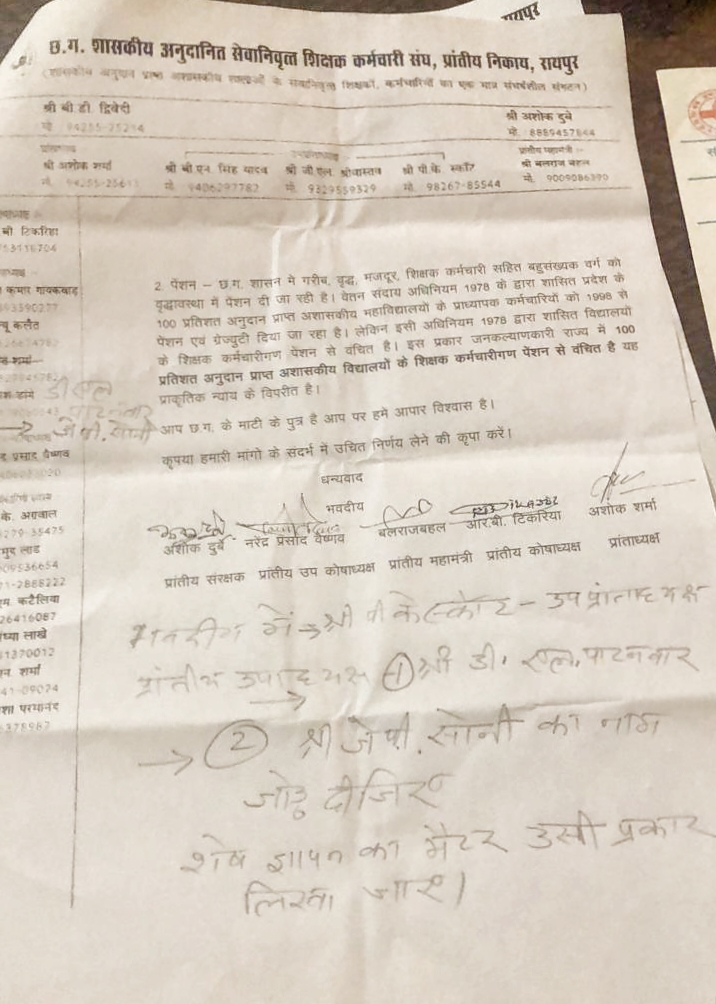 रायपुर
छ.ग. शासकीय अनुदानित सेवानिवृत्त शिक्षक कर्मचारी संघ, प्रांतीय निकाय, रायपुर
(शासकीय अनुदान प्राप्त अशासकीय शालाओं के सेवानिवृत्त शिक्षकों, कर्मचारियों का एक मात्र संघर्षशील संगठन)
श्री बी.डी. द्विवेदी
श्री अशोक दुबे
मो. 94255-25214
मो. 8889457844
श्री अशोक शर्मा श्री बी एन. सिंह यादव श्री जी.एल. श्रीवास्तव श्री पी.के. स्कॉट श्री बलराज बहल
मो. 9406297782 मो. 9329559329 मो. 98267-85544 मो. 9009086390
बी टिकरिहा
कुमार गायकवाड़
2. पेंशन – छ.ग. शासन में गरीब, वृद्ध, मजदूर, शिक्षक कर्मचारी सहित बहुसंख्यक वर्ग को
वृद्धावस्था में पेंशन दी जा रही है। वेतन संदाय अधिनियम 1978 के द्वारा शासित प्रदेश के
100 प्रतिशत अनुदान प्राप्त अशासकीय महाविद्यालयों के प्राध्यापक कर्मचारियों को 1998 से
पेंशन एवं ग्रेज्युटी दिया जा रहा है। लेकिन इसी अधिनियम 1978 द्वारा शासित विद्यालयों
के शिक्षक कर्मचारीगण पेंशन से वंचित है। इस प्रकार जनकल्याणकारी राज्य में 100
प्रतिशत अनुदान प्राप्त अशासकीय विद्यालयों के शिक्षक कर्मचारीगण पेंशन से वंचित है यह
प्राकृतिक न्याय के विपरीत है।
आप छ.ग. के माटी के पुत्र है आप पर हमें आपार विश्वास है।
कृपया हमारी मांगो के संदर्भ में उचित निर्णय लेने की कृपा करें।
डी एल
पाटनवार
→ जे.पी. सोनी
प्रसाद वैष्णव
के. अग्रवाल
279-35475
मुद लाड
09536654
1-2888222
एम कटैलिया
26416087
ध्या लाखे
81370012
न शर्मा
41-09074
शा परमानंद
धन्यवाद
भवदीय
अशोक दुबे नरेंद्र प्रसाद वैष्णव बलराजबहल आर.बी. टिकरिया अशोक शर्मा
प्रांतीय संरक्षक प्रांतीय उप कोषाध्यक्ष प्रांतीय महामंत्री प्रांतीय कोषाध्यक्ष प्रांताध्यक्ष
भवदीय में → श्री पी के स्कॉट – उप प्रांताध्यक्ष
प्रांतीय उपाध्यक्ष → ① श्री डी. एल. पाटनवार
→ ② श्री जे.पी. सोनी का नाम
जोड़ दीजिए
शेष ज्ञापन का मैटर उसी प्रकार
लिखा जाए।